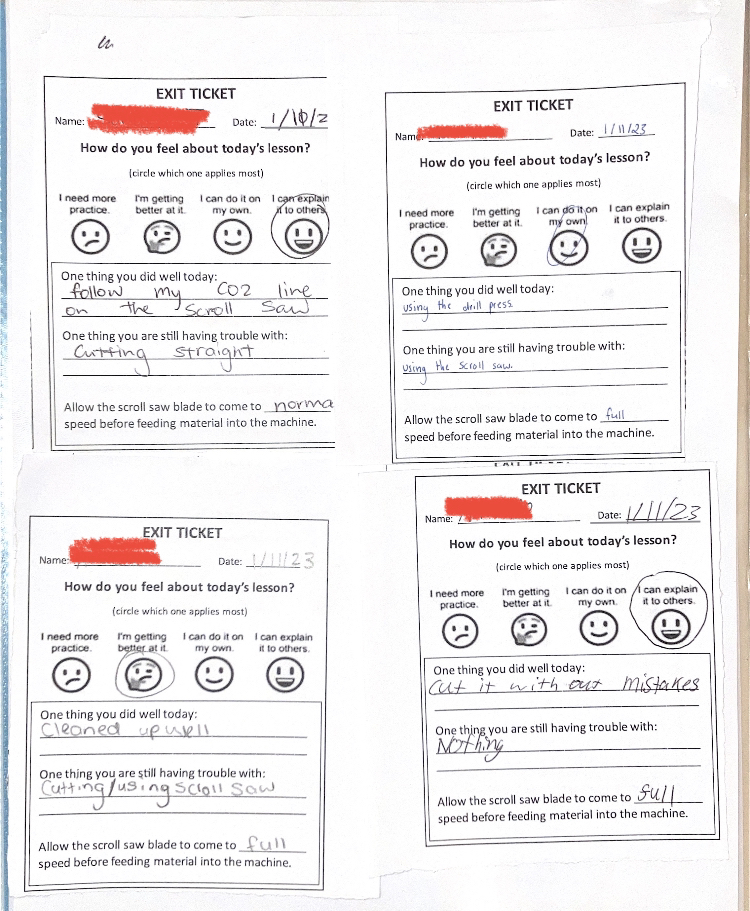 EXIT TICKET
Name: Date: 1/10/2
How do you feel about today's lesson?
(circle which one applies most)
I need more I'm getting I can do it on I can explain
practice. better at it. my own. it to others.
One thing you did well today:
follow my CO2 line
on the Scroll Saw
One thing you are still having trouble with:
Cutting straight
Allow the scroll saw blade to come to norma
speed before feeding material into the machine.
EXIT TICKET
Name: Date: 1/11/23
How do you feel about today's lesson?
(circle which one applies most)
I need more I'm getting I can do it on I can explain
practice. better at it. my own. it to others.
One thing you did well today:
using the drill press.
One thing you are still having trouble with:
using the scroll saw.
Allow the scroll saw blade to come to full
speed before feeding material into the machine.
EXIT TICKET
Name: Date: 1/11/23
How do you feel about today's lesson?
(circle which one applies most)
I need more I'm getting I can do it on I can explain
practice. better at it. my own. it to others.
One thing you did well today:
Cleaned up well
One thing you are still having trouble with:
Cutting/using scroll saw
Allow the scroll saw blade to come to full
speed before feeding material into the machine.
EXIT TICKET
Name: Date: 1/11/23
How do you feel about today's lesson?
(circle which one applies most)
I need more I'm getting I can do it on I can explain
practice. better at it. my own. it to others.
One thing you did well today:
Cut it with out mistakes
One thing you are still having trouble with:
Nothing
Allow the scroll saw blade to come to full
speed before feeding material into the machine.